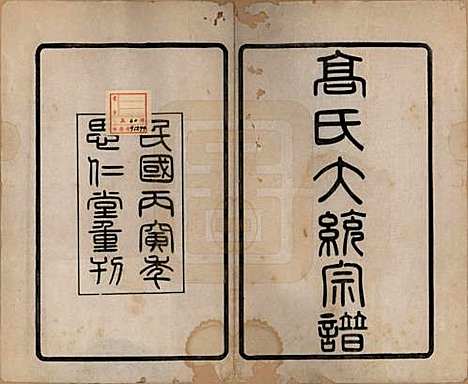 高氏大統宗譜
民國丙寅年
思仁堂重刊